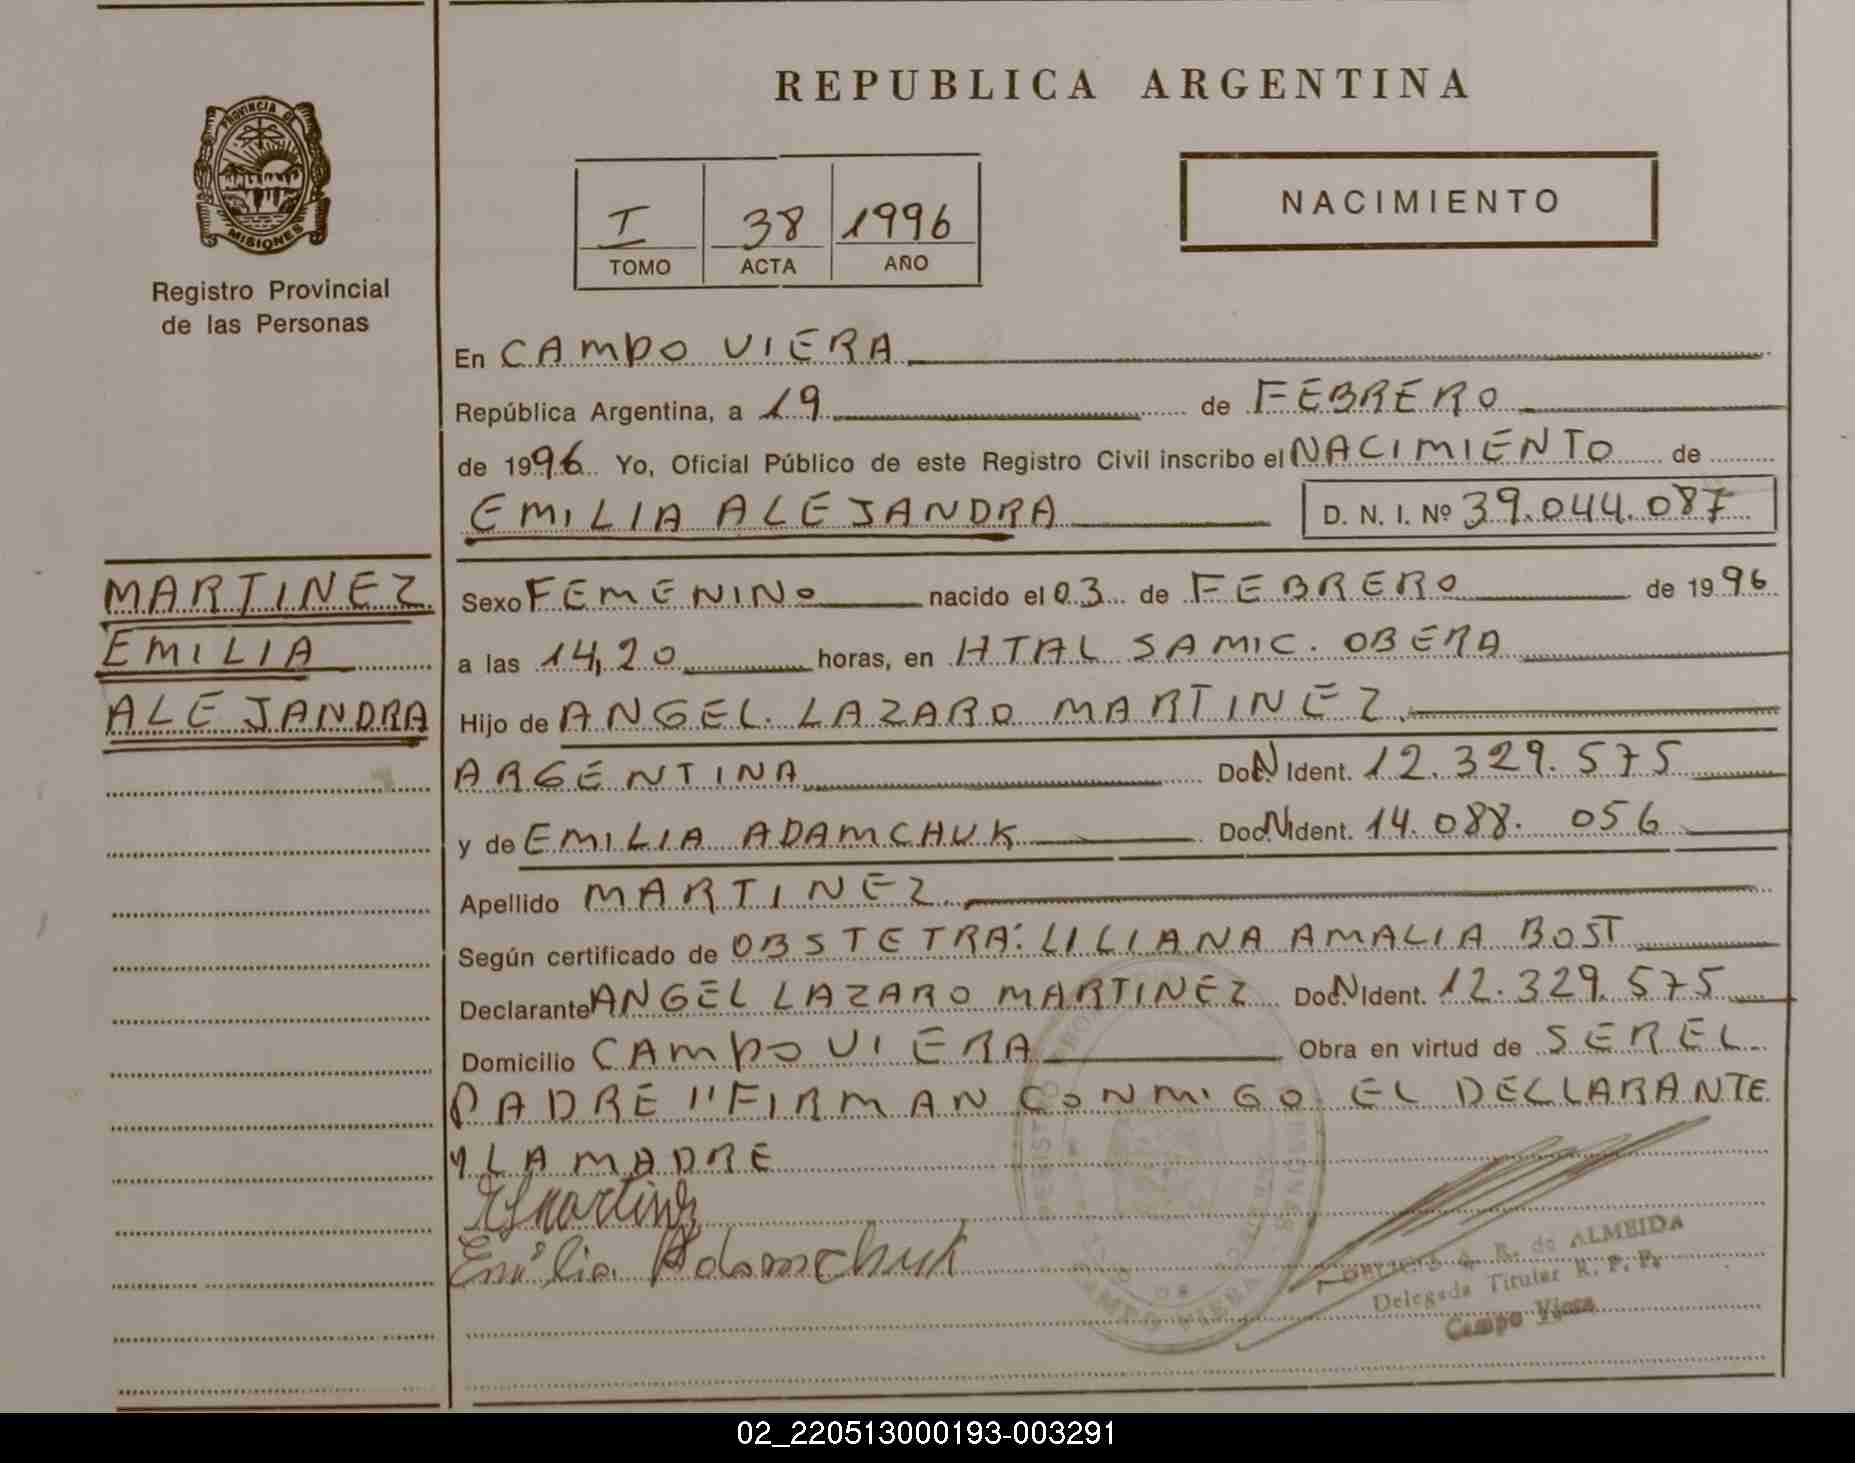 REPUBLICA ARGENTINA
PROVINCIA DE
MISIONES
Registro Provincial
de las Personas
I 38 1996
TOMO ACTA AÑO
NACIMIENTO
En CAMPO VIERA
República Argentina, a 19 de FEBRERO
de 1996 Yo, Oficial Público de este Registro Civil inscribo el NACIMIENTO de
EMILIA ALEJANDRA D. N. I. Nº 39.044.087
MARTINEZ
EMILIA
ALEJANDRA
Sexo FEMENINO nacido el 03 de FEBRERO de 1996
a las 14,20 horas, en HTAL SAMIC. OBERA
Hijo de ANGEL LAZARO MARTINEZ
ARGENTINA Doc. N Ident. 12.329.575
y de EMILIA ADAMCHUK Doc. N Ident. 14.088.056
Apellido MARTINEZ
Según certificado de OBSTETRA: LILIANA AMALIA BOST
Declarante ANGEL LAZARO MARTINEZ Doc. N Ident. 12.329.575
Domicilio CAMPO VIERA Obra en virtud de SER EL
PADRE "FIRMAN CONMIGO EL DECLARANTE
Y LA MADRE
Martinez
Emilia Adamchuk
R. de ALMEIDA
Delegada Titular R. P. P.
Campo Viera
CAMPO VIERA
02_220513000193-003291